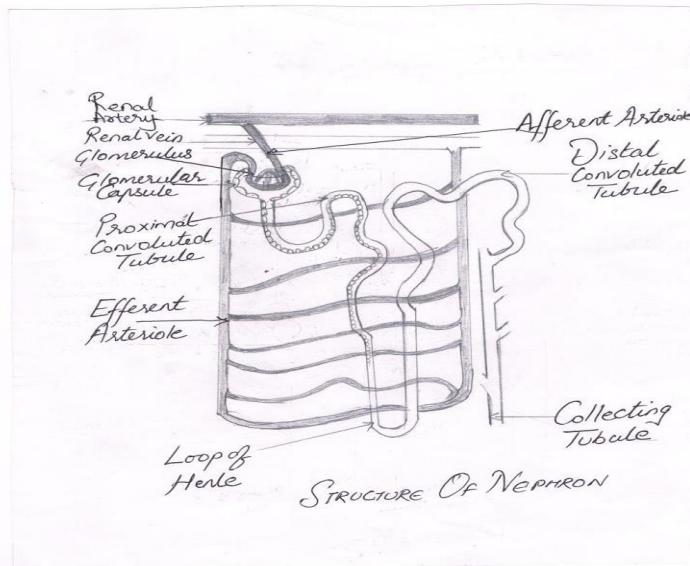 Renal
Artery
Renal vein
Glomerulus
Glomerular
Capsule
Proximal
Convoluted
Tubule
Efferent
Arteriole
Loop of
Henle
Afferent Arteriole
Distal
Convoluted
Tubule
Collecting
Tubule
STRUCTURE OF NEPHRON